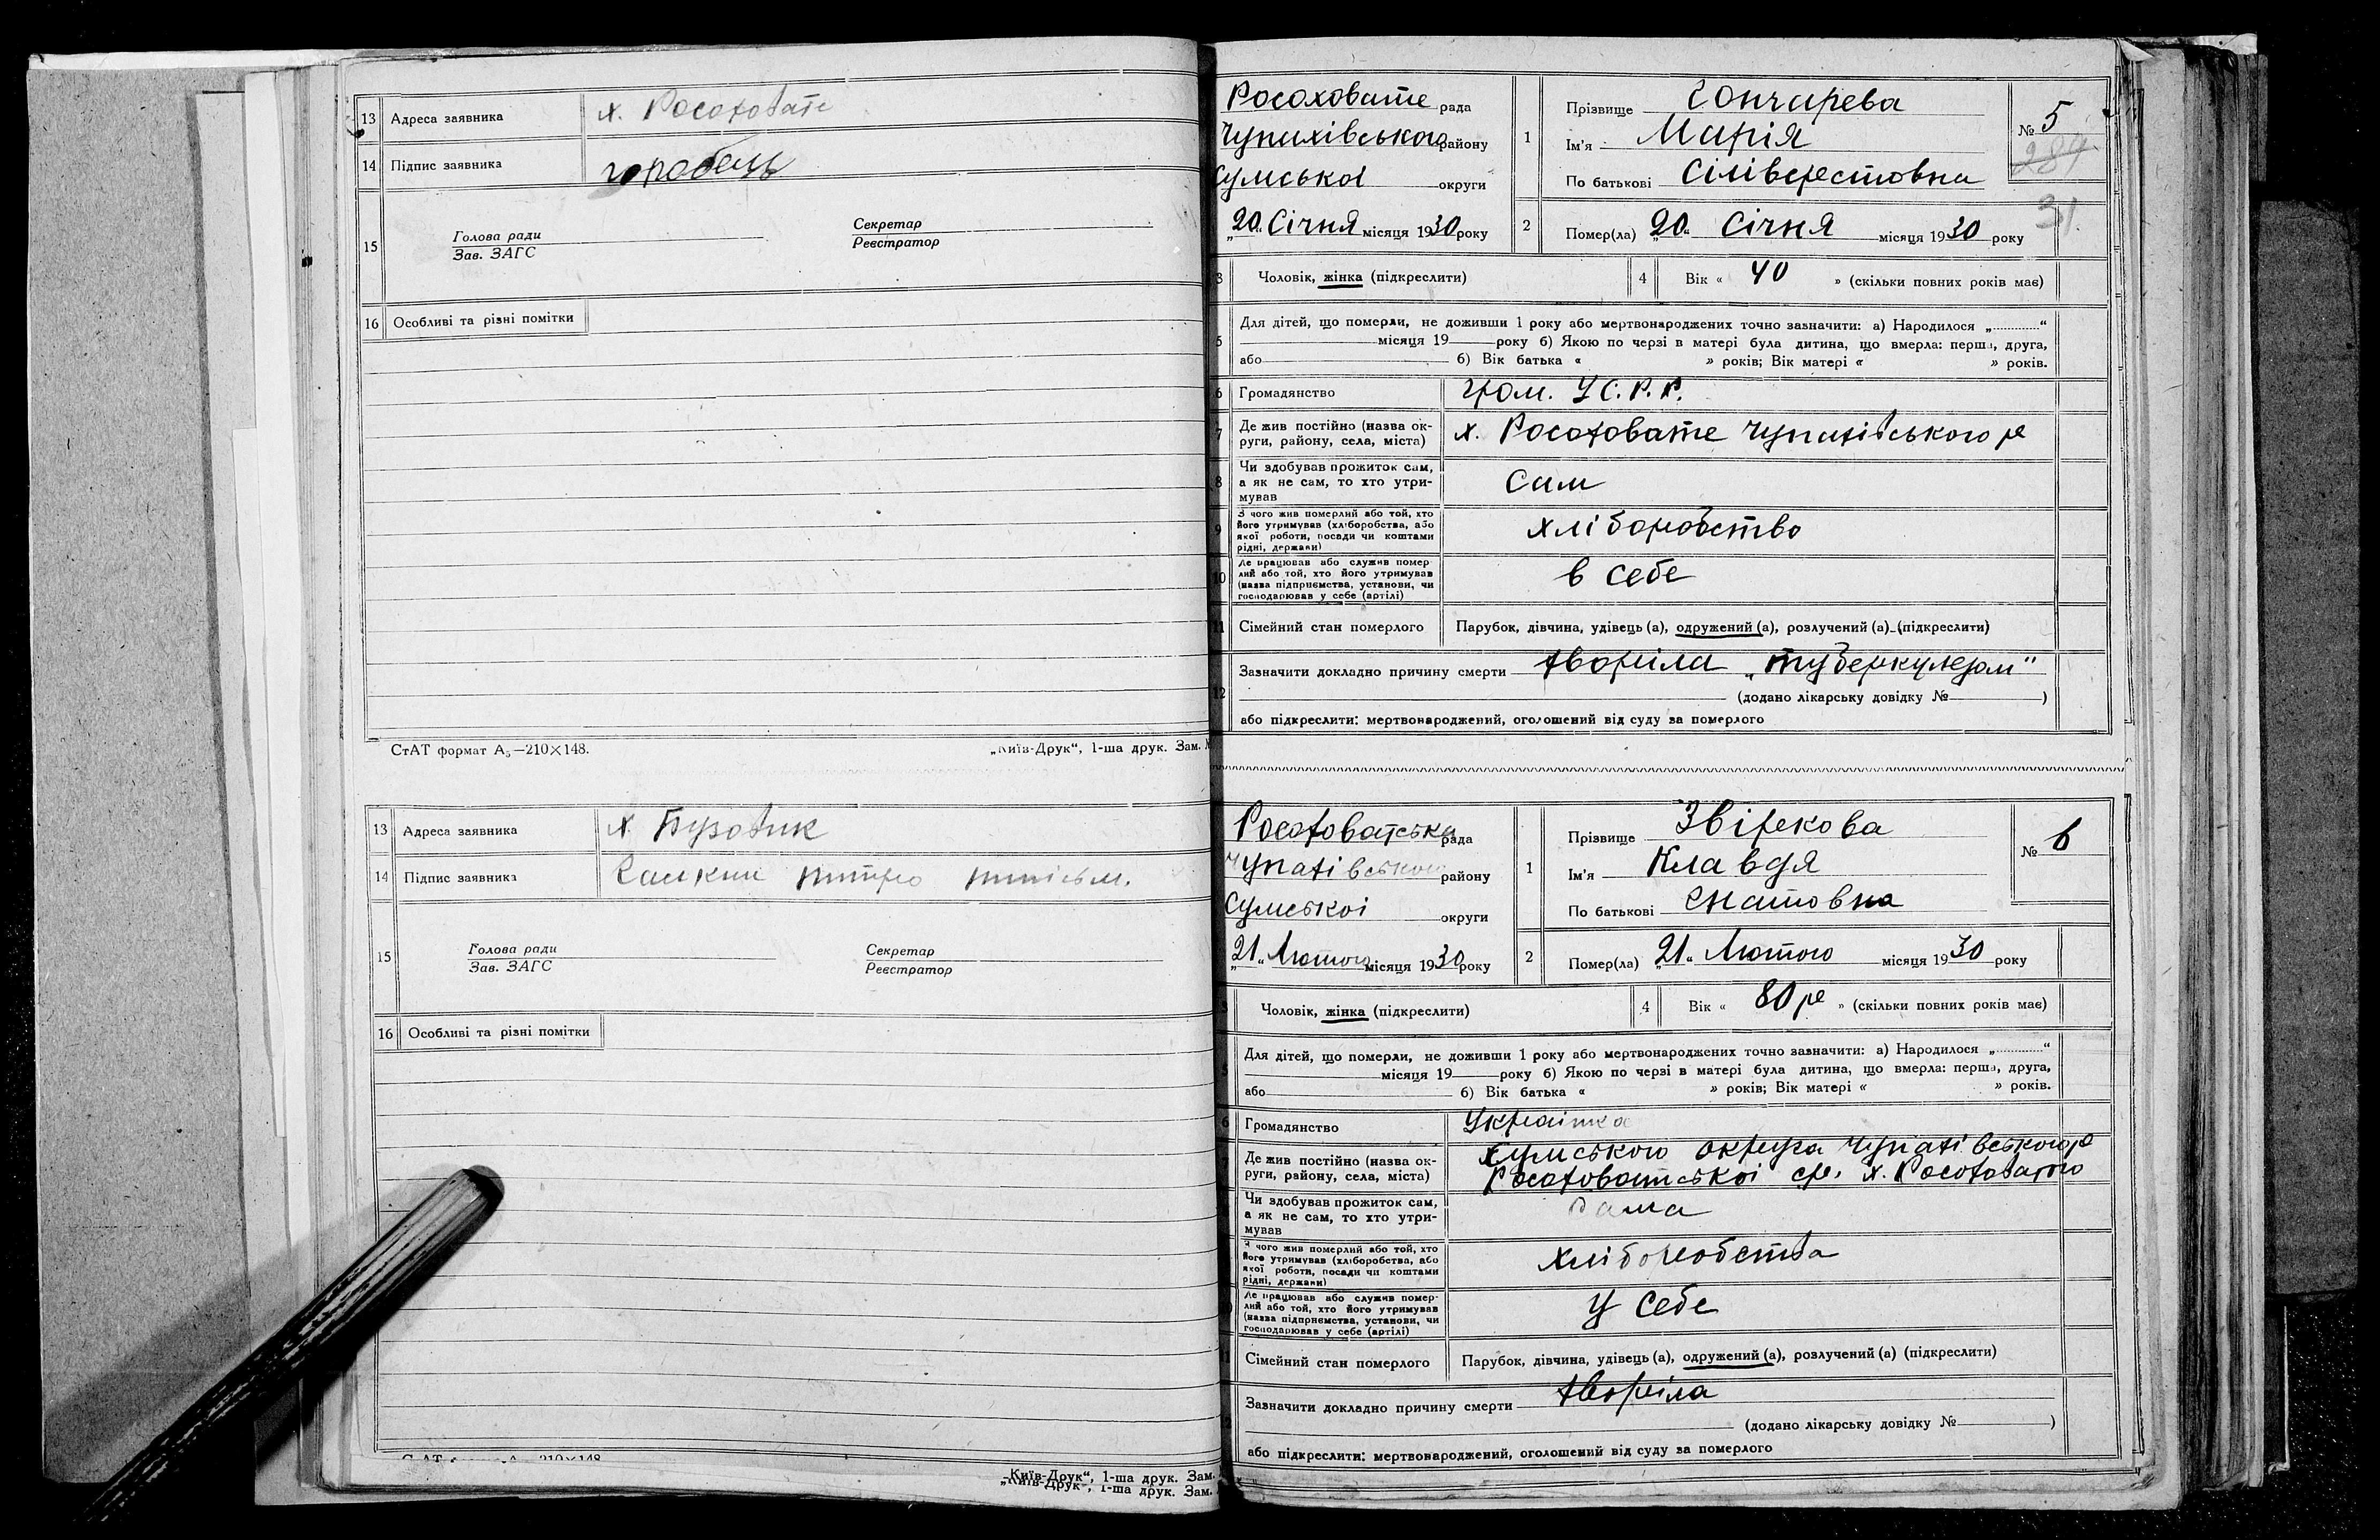 13 Адреса заявника х. Росоховате
14 Підпис заявника горобець
15 Голова ради Секретар
Зав. ЗАГС Реєстратор
16 Особливі та різні помітки
СтАТ формат А₅—210×148. „Київ-Друк“, 1-ша друк. Зам.
13 Адреса заявника х.
14 Підпис заявника
15 Голова ради Секретар
Зав. ЗАГС Реєстратор
16 Особливі та різні помітки
„Київ-Друк“, 1-ша друк. Зам.
„Київ-Друк“, 1-ша друк. Зам.
Росоховате рада
Чупихівського району
Сумської округи
„20“ Січня місяця 1930 року
1 Прізвище Гончарева
Ім'я Марія
По батькові Сіліверестовна
№ 5
284
31.
2 Помер(ла) „20“ Січня місяця 1930 року
3 Чоловік, жінка (підкреслити) 4 Вік « 40 » (скільки повних років має)
5 Для дітей, що померли, не доживши 1 року або мертвонароджених точно зазначити: а) Народилося „............“
місяця 19 року б) Якою по черзі в матері була дитина, що вмерла: перша, друга,
або б) Вік батька « » років; Вік матері « » років.
6 Громадянство гром. У С.Р.Р.
7 Де жив постійно (назва ок-
руги, району, села, міста) х. Росоховате Чупахівського р
8 Чи здобував прожиток сам,
а як не сам, то хто утри-
мував Сам
9 З чого жив померлий або той, хто
його утримував (хліборобства, або
якої роботи, посади чи коштами
рідні, держави) хліборобство
10 Де працював або служив помер-
лий або той, хто його утримував
(назва підприємства, установи, чи
господарював у себе (артілі) в себе
11 Сімейний стан померлого Парубок, дівчина, удівець (а), одружений (а), розлучений (а) (підкреслити)
12 Зазначити докладно причину смерти хворіла „туберкульозом“
(додано лікарську довідку № )
або підкреслити: мертвонароджений, оголошений від суду за померлого
Росоховатська рада
Чупахівського району
Сумської округи
„21“ Лютого місяця 1930 року
1 Прізвище Звірекова
Ім'я Клавдя
По батькові Гнатовна
№ 6
2 Помер(ла) „21“ Лютого місяця 1930 року
3 Чоловік, жінка (підкреслити) 4 Вік « 80 р » (скільки повних років має)
5 Для дітей, що померли, не доживши 1 року або мертвонароджених точно зазначити: а) Народилося „............“
місяця 19 року б) Якою по черзі в матері була дитина, що вмерла: перша, друга,
або б) Вік батька « » років; Вік матері « » років.
6 Громадянство Українка
7 Де жив постійно (назва ок-
руги, району, села, міста) Сумського округа Чупахівського р
Росоховатської ср. х. Росоховатого
Чи здобував прожиток сам,
а як не сам, то хто утри-
мував Сама
З чого жив померлий або той, хто
його утримував (хліборобства, або
якої роботи, посади чи коштами
рідні, держави) хліборобства
Де працював або служив помер-
лий або той, хто його утримував
(назва підприємства, установи, чи
господарював у себе (артілі) у себе
Сімейний стан померлого Парубок, дівчина, удівець (а), одружений (а), розлучений (а) (підкреслити)
Зазначити докладно причину смерти хворіла
(додано лікарську довідку № )
або підкреслити: мертвонароджений, оголошений від суду за померлого